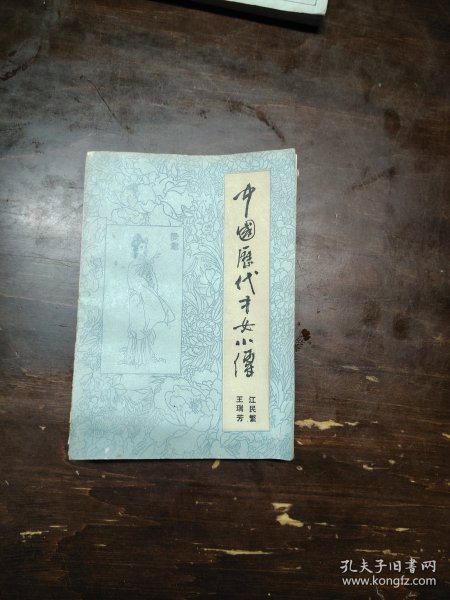 中國歷代才女小傳
江民繁
王瑞芳
孔夫子旧书网
www.kongfz.com